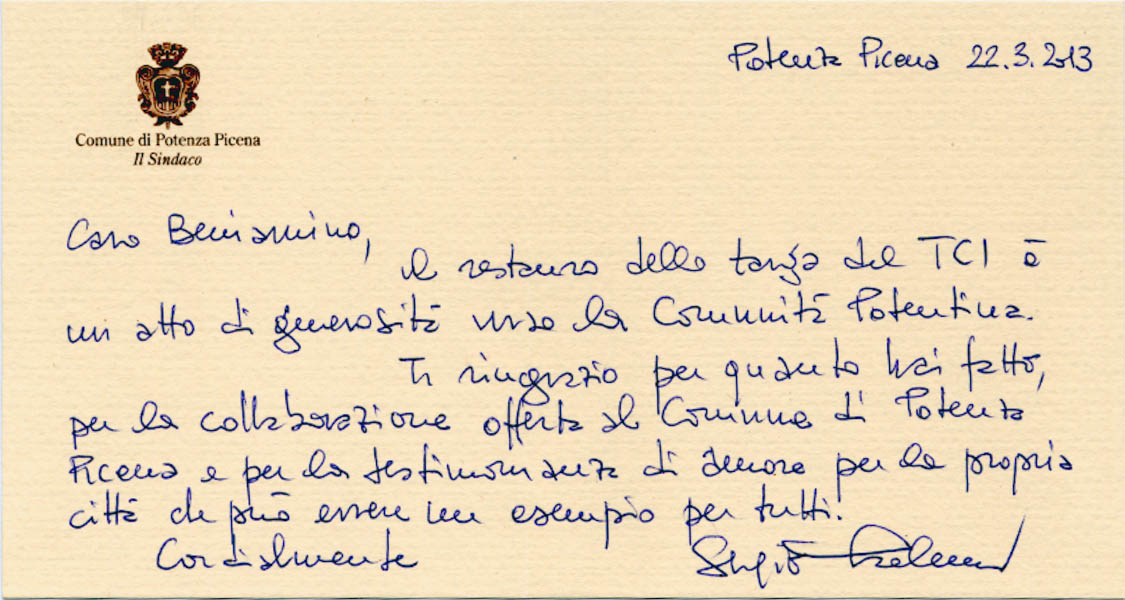 Potenza Picena 22.3.2013
Comune di Potenza Picena
Il Sindaco
Caro Beniamino,
il restauro della targa del TCI è
un atto di generosità verso la Comunità Potentina.
Ti ringrazio per quanto hai fatto,
per la collaborazione offerta al Comune di Potenza
Picena e per la testimonianza di amore per la propria
città che può essere un esempio per tutti!
Cordialmente
Sergio